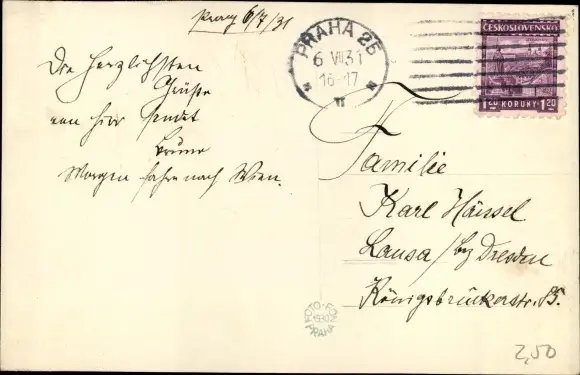 Prag 6/7/31
Die herzlichsten
Grüße
von hier sendet
Bruno
Morgen fahre nach Wien.
PRAHA 25
6 VII 31
16-17
ČESKOSLOVENSKO
1.20 KORUNY 1.20
Familie
Karl Hänsel
Lausa / bz Dresden
Königsbrückerstr. 85.
FOTO-FON
1930
PRAHA
2,50